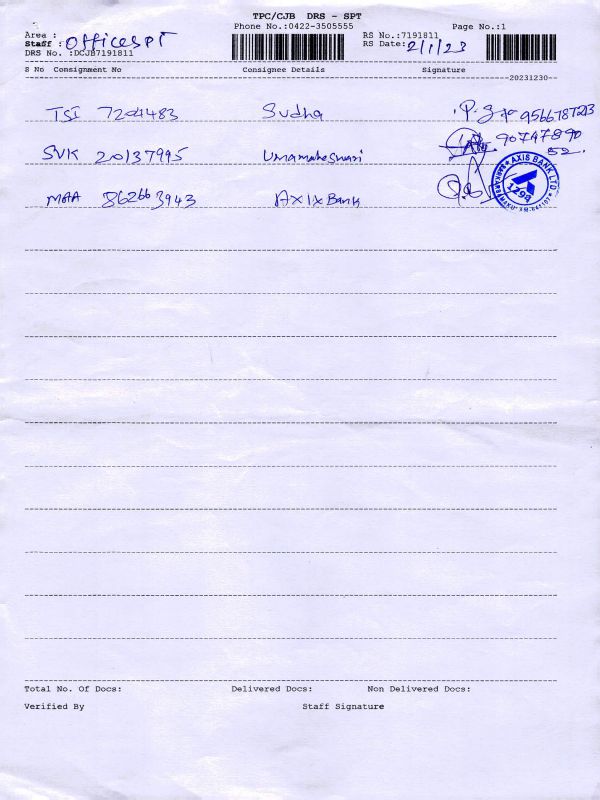 TPC/CJB DRS - SPT
Phone No.:0422-3505555 Page No.:1
Area :
Staff : OFFICE SPT
RS No.:7191811
RS Date: 2/1/23
DRS No. :DCJB7191811
S No Consignment No Consignee Details Signature
20231230
TSI 7204483 Sudha 9566787213
SVK 20137995 Umamaheswari 90747890
52
MAA 862663943 AXIX Bank
AXIS BANK LTD.
1299
Total No. Of Docs: Delivered Docs: Non Delivered Docs:
Verified By Staff Signature